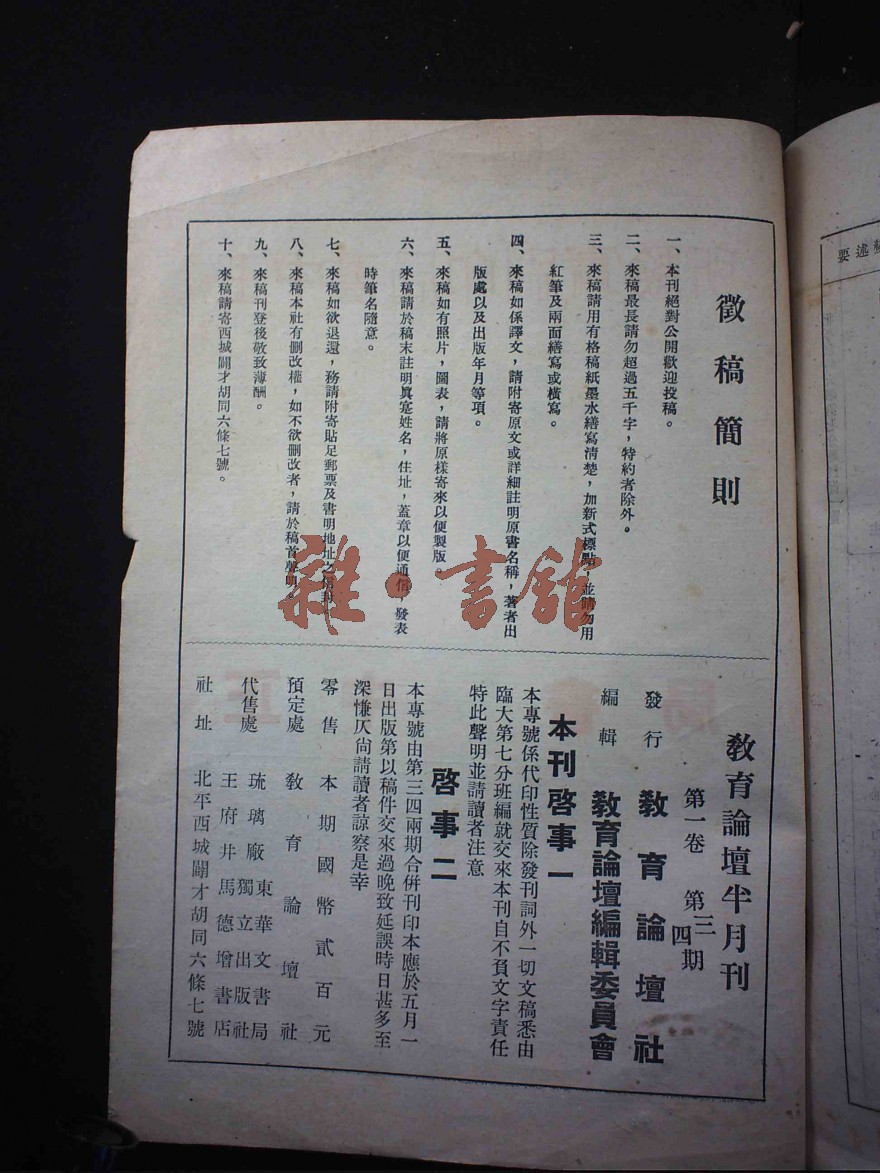 徵稿簡則
一、本刊絕對公開歡迎投稿。
二、來稿最長請勿超過五千字，特約者除外。
三、來稿請用有格稿紙墨水繕寫清楚，加新式標點，並請勿用
紅筆及兩面繕寫或橫寫。
四、來稿如係譯文，請附寄原文或詳細註明原書名稱，著者出
版處以及出版年月等項。
五、來稿如有照片，圖表，請將原樣寄來以便製版。
六、來稿請於稿末註明眞寔姓名，住址，蓋章以便通信，發表
時筆名隨意。
七、來稿如欲退還，務請附寄貼足郵票及書明地址之信封。
八、來稿本社有刪改權，如不欲刪改者，請於稿首聲明。
九、來稿刊登後敬致薄酬。
十、來稿請寄西城闢才胡同六條七號。
教育論壇半月刊
第一卷 第三四期
發行 教育論壇社
編輯 教育論壇編輯委員會
本刊啓事一
本專號係代印性質除發刊詞外一切文稿悉由
臨大第七分班編就交來本刊自不負文字責任
特此聲明並請讀者注意
啓事二
本專號由第三四兩期合併刊印本應於五月一
日出版第以稿件交來過晚致延誤時日甚多至
深慊仄尚請讀者諒察是幸
零售 本期國幣貳百元
預定處 教育論壇社
代售處 琉璃廠東華文書局
獨立出版社
王府井馬德增書店
社址 北平西城闢才胡同六條七號
雜·書館
述要